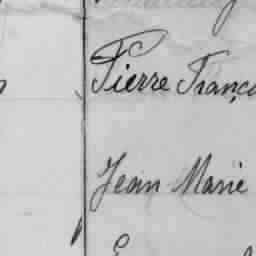 Pierre Franço
Jean Marie